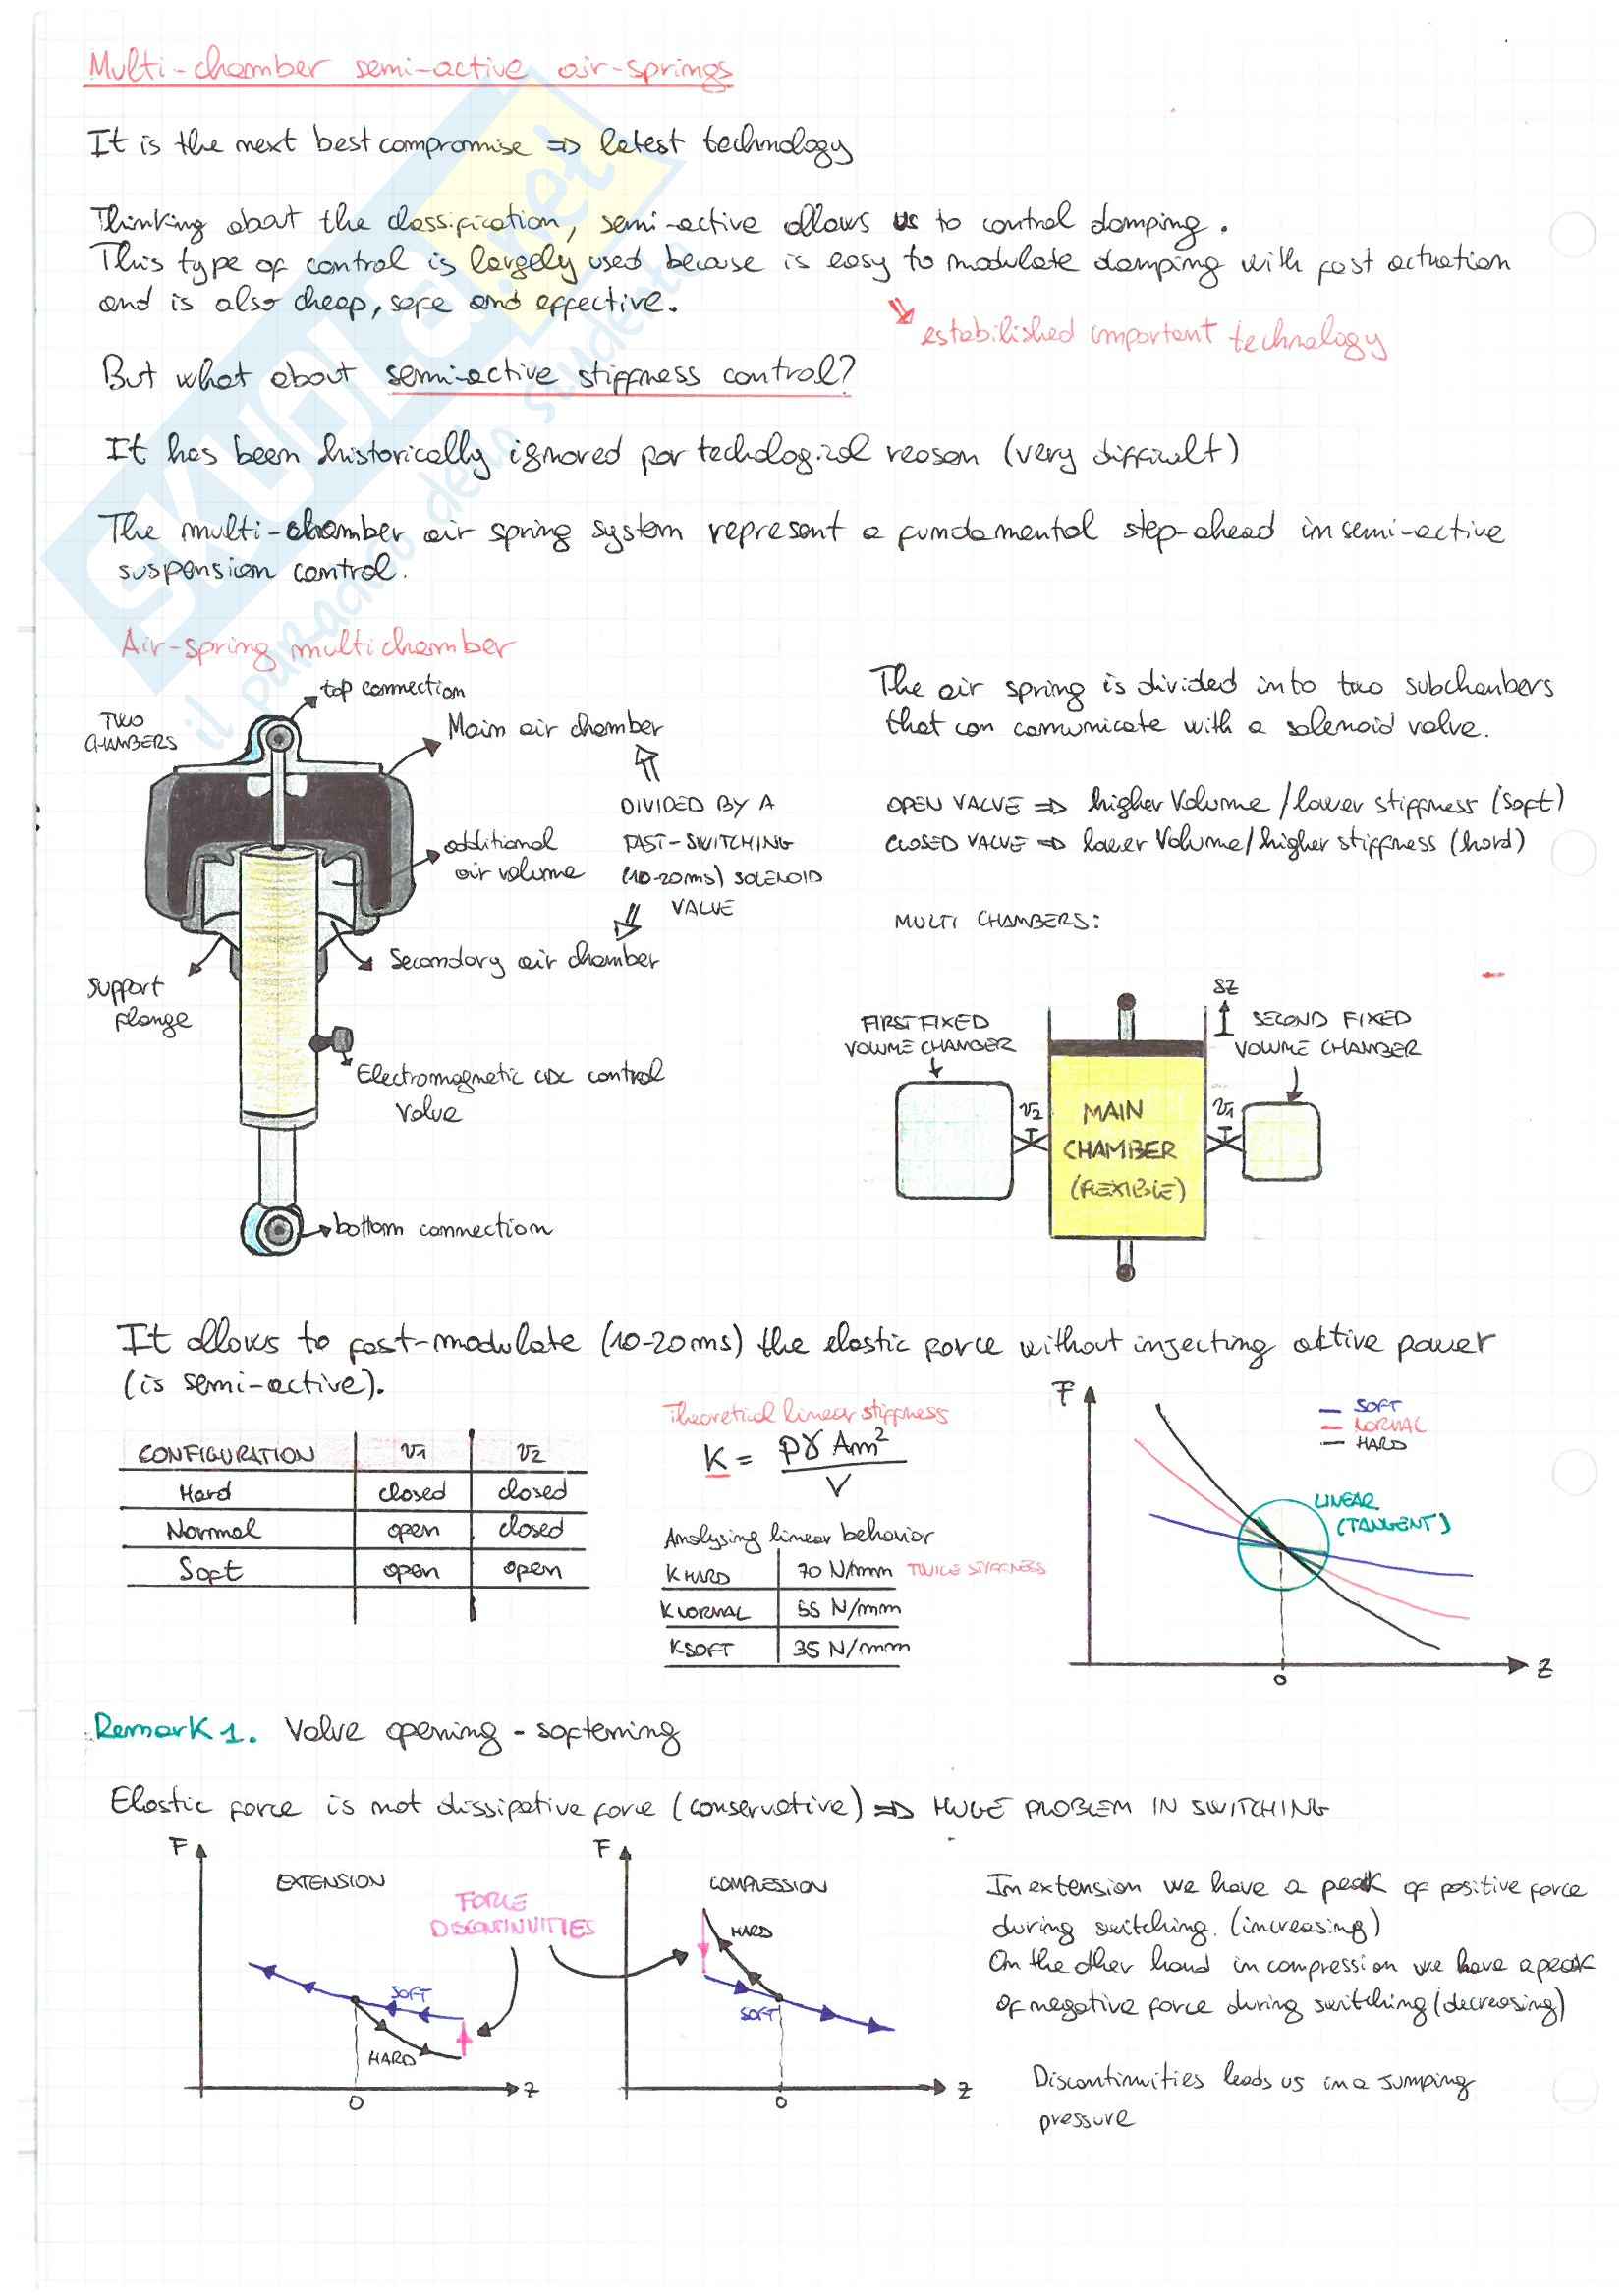 Multi-chamber semi-active air-springs
It is the next best compromise => latest technology
Thinking about the classification, semi-active allows us to control damping.
This type of control is largely used because is easy to modulate damping with fast actuation
and is also cheap, safe and effective.
estabilished important technology
But what about semi-active stiffness control?
It has been historically ignored for techological reason (very difficult)
The multi-chamber air spring system represent a fundamental step-ahead in semi-active
suspension control.
Air-spring multichamber
TWO
CHAMBERS
top connection
Main air chamber
DIVIDED BY A
FAST-SWITCHING
(10-20ms) SOLENOID
VALVE
additional
air volume
Secondary air chamber
support
flange
Electromagnetic CDC control
Valve
bottom connection
The air spring is divided into two subchambers
that can comunicate with a solenoid valve.
OPEN VALVE => higher Volume / lower stiffness (Soft)
CLOSED VALVE => lower Volume/higher stiffness (hard)
MULTI CHAMBERS:
FIRST FIXED
VOLUME CHAMBER
δZ
SECOND FIXED
VOLUME CHAMBER
v2
MAIN
CHAMBER
(FLEXIBLE)
v1
It allows to fast-modulate (10-20ms) the elastic force without injecting aktive power
(is semi-active).
CONFIGURATION v1 v2
Hard closed closed
Normal open closed
Soft open open
Theoretical linear stiffness
K = PγAm²/V
Analysing linear behavior
KHARD 70 N/mm TWICE STIFFNESS
KNORMAL 55 N/mm
KSOFT 35 N/mm
F
SOFT
NORMAL
HARD
LINEAR
(TANGENT)
0
Z
Remark 1. Valve opening - softening
Elastic force is not dissipative force (conservative) => HUGE PROBLEM IN SWITCHING
F
EXTENSION
FORCE
DISCONTINUITIES
SOFT
HARD
0
Z
F
COMPRESSION
HARD
SOFT
0
Z
In extension we have a peak of positive force
during switching. (increasing)
On the other hand in compression we have a peak
of negative force during switching (decreasing)
Discontinuities leads us in a jumping
pressure
SKUOLA.net
il paradiso dello studente